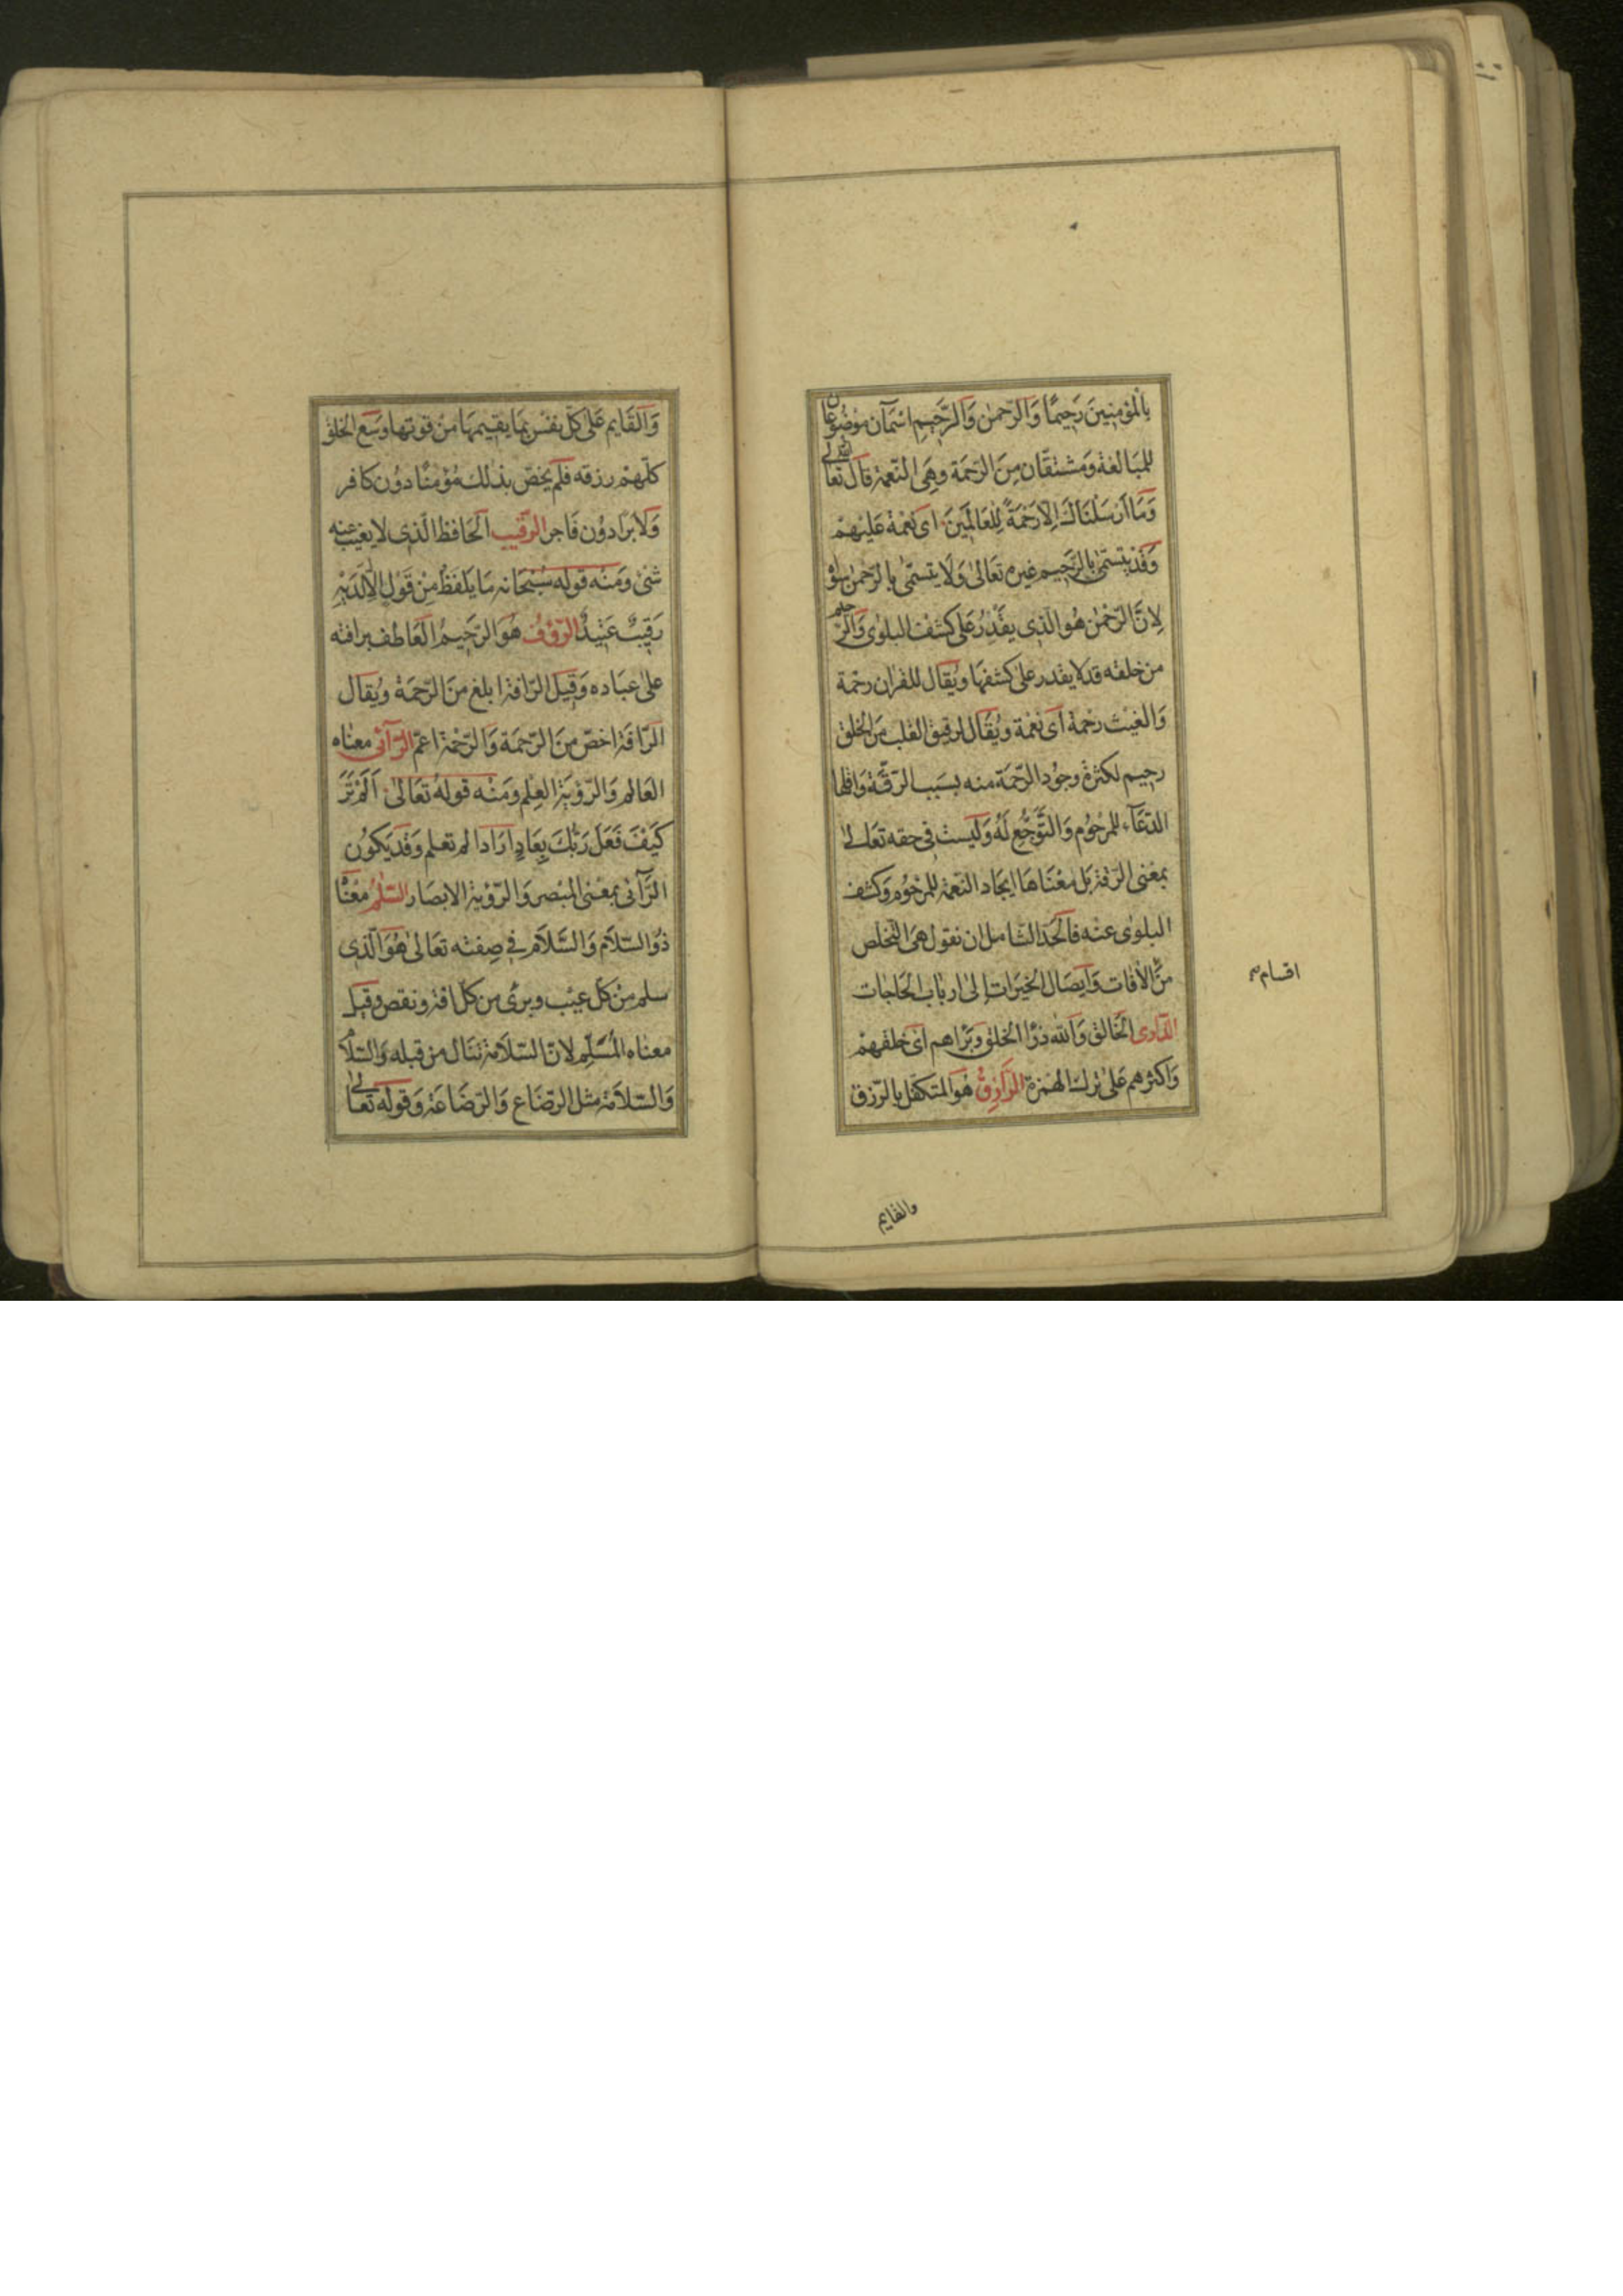 بِالْمُؤمِنِينَ رَحِيمًا وَالرّحمٰن وَالرَّحِيمِ اسْمَآن موْضُوعَان
للمبَالغة وَمشتقّان مِنَ الرّحمَة وهِيَ النّعمَة قالَ الله تعَالى
وَمَا اَرْسَلْنَاكَ اِلاّ رَحْمَةً لِلعَالَمِينَ اى نعْمَة عَلَيْهِمْ
وَقَدْ يتسَمّى بِالرَّحِيم غيره تعَالىٰ وَلَا يتسمّى بالرّحمٰن سِوٰهُ
لِانّ الرّحْمٰن هُو الّذِى يقْدِرُ عَلىٰ كشْف البلوٰى وَالرّحيم
من خلقه قد لا يقدر علىٰ كشفهَا ويُقال للقران رحْمة
وَالغيْث رحْمة اَى نعْمَة ويُقَال لرقيق القلب مِنَ الخلق
رحِيم لكثرة وجُود الرّحمَة منه بسَبب الرّقّة وَاقلها
الدّعَآء للمرْحُوم وَالتّوَجُّع لَهُ وَليست فى حقه تعَالىٰ
بمعْنى الرّقة بَل معْنَاهَا ايجَاد النّعمَة للمرْحُوم وَكشف
البلوٰى عنْه فاَلحَدّ الشّامل ان نقول هىَ التّخلص
منْ اقسام الاٰفات وَايصَال الخيرَات اِلىٰ اربَاب الحَاجات
الذّارى الخَالق وَالله ذرَا الخلق وَبَرَاهم اَى خلقهمْ
وَاكثرهم عَلىٰ ترك الهمزة الرّازِقُ هُوَ المتكفّل بِالرّزق
والقايم
وَالقَايم عَلىٰ كلّ نفْسٍ بِمَا يقيمهَا منْ قوتها وسَع الخلق
كلّهمْ رزقه فلَم يخصّ بذٰلك مؤمنًا دوُن كافر
وَلا بَرّا دوُن فَاجر الرّقيب الحَافظ الّذى لا يغيب عنه
شئ وَمنْه قوله سُبْحَانه مَا يَلفظُ مِنْ قَوْلٍ اِلّا لَدَيْهِ
رَقِيبٌ عَتِيدٌ الرّؤفُ هُوَ الرّحِيمُ العَاطف برافته
علىٰ عبَاده وَقِيلَ الرّافة ابلغ مِنَ الرّحمَة ويُقال
الرّافة اخصّ مِنَ الرّحمَة وَالرّحْمَة اعمّ الرّآئى معنٰاه
العَالم وَالرّؤية العِلم ومِنْه قولهُ تعَالىٰ اَلَمْ تَرَ
كَيْفَ فَعَلَ رَبُّكَ بِعَادٍ ارَادا لم تعلم وَقَد يَكوُن
الرّآئى بمعْنى المبْصر وَالرّؤية الابصَار السّلٰمُ معْنَاهُ
ذوُ السّلاَم وَالسّلاَم فى صِفته تعَالىٰ هُوَ الّذى
سلم مِنْ كلّ عيْب وبرئ من كل افة ونقص وقيل
معناه المُسَلِّم لانّ السّلاَمة تنال من قبله وَالسّلاَمُ
وَالسّلاَمة مثل الرّضَاع وَالرّضَاعة وَقوله تعَالىٰ